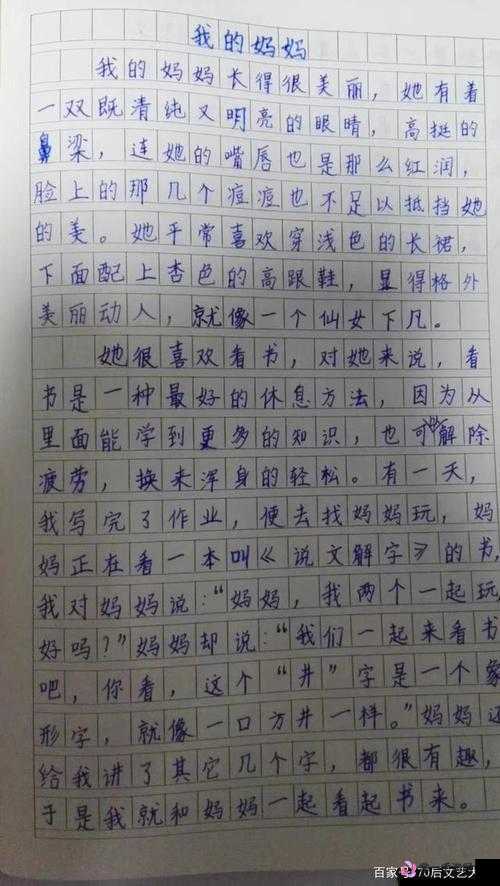 我的妈妈
我的妈妈长得很美丽，她有着
一双既清纯又明亮的眼睛，高挺的
鼻梁，连她的嘴唇也是那么红润，
脸上的那几个痘痘也不足以抵挡她
的美。她平常喜欢穿浅色的长裙，
下面配上杏色的高跟鞋，显得格外
美丽动人，就像一个仙女下凡。
她很喜欢看书，对她来说，看
书是一种最好的休息方法，因为从
里面能学到更多的知识，也可以解除
疲劳，换来浑身的轻松。有一天，
我写完了作业，便去找妈妈玩，妈
妈正在看一本叫《说文解字》的书，
我对妈妈说：“妈妈，我两个一起玩
好吗？”妈妈却说：“我们一起来看书
吧，你看，这个“井”字是一个象
形字，就像一口方井一样。”妈妈还
给我讲了其它几个字，都很有趣，
于是我就和妈妈一起看起书来。
百家号/70后文艺大